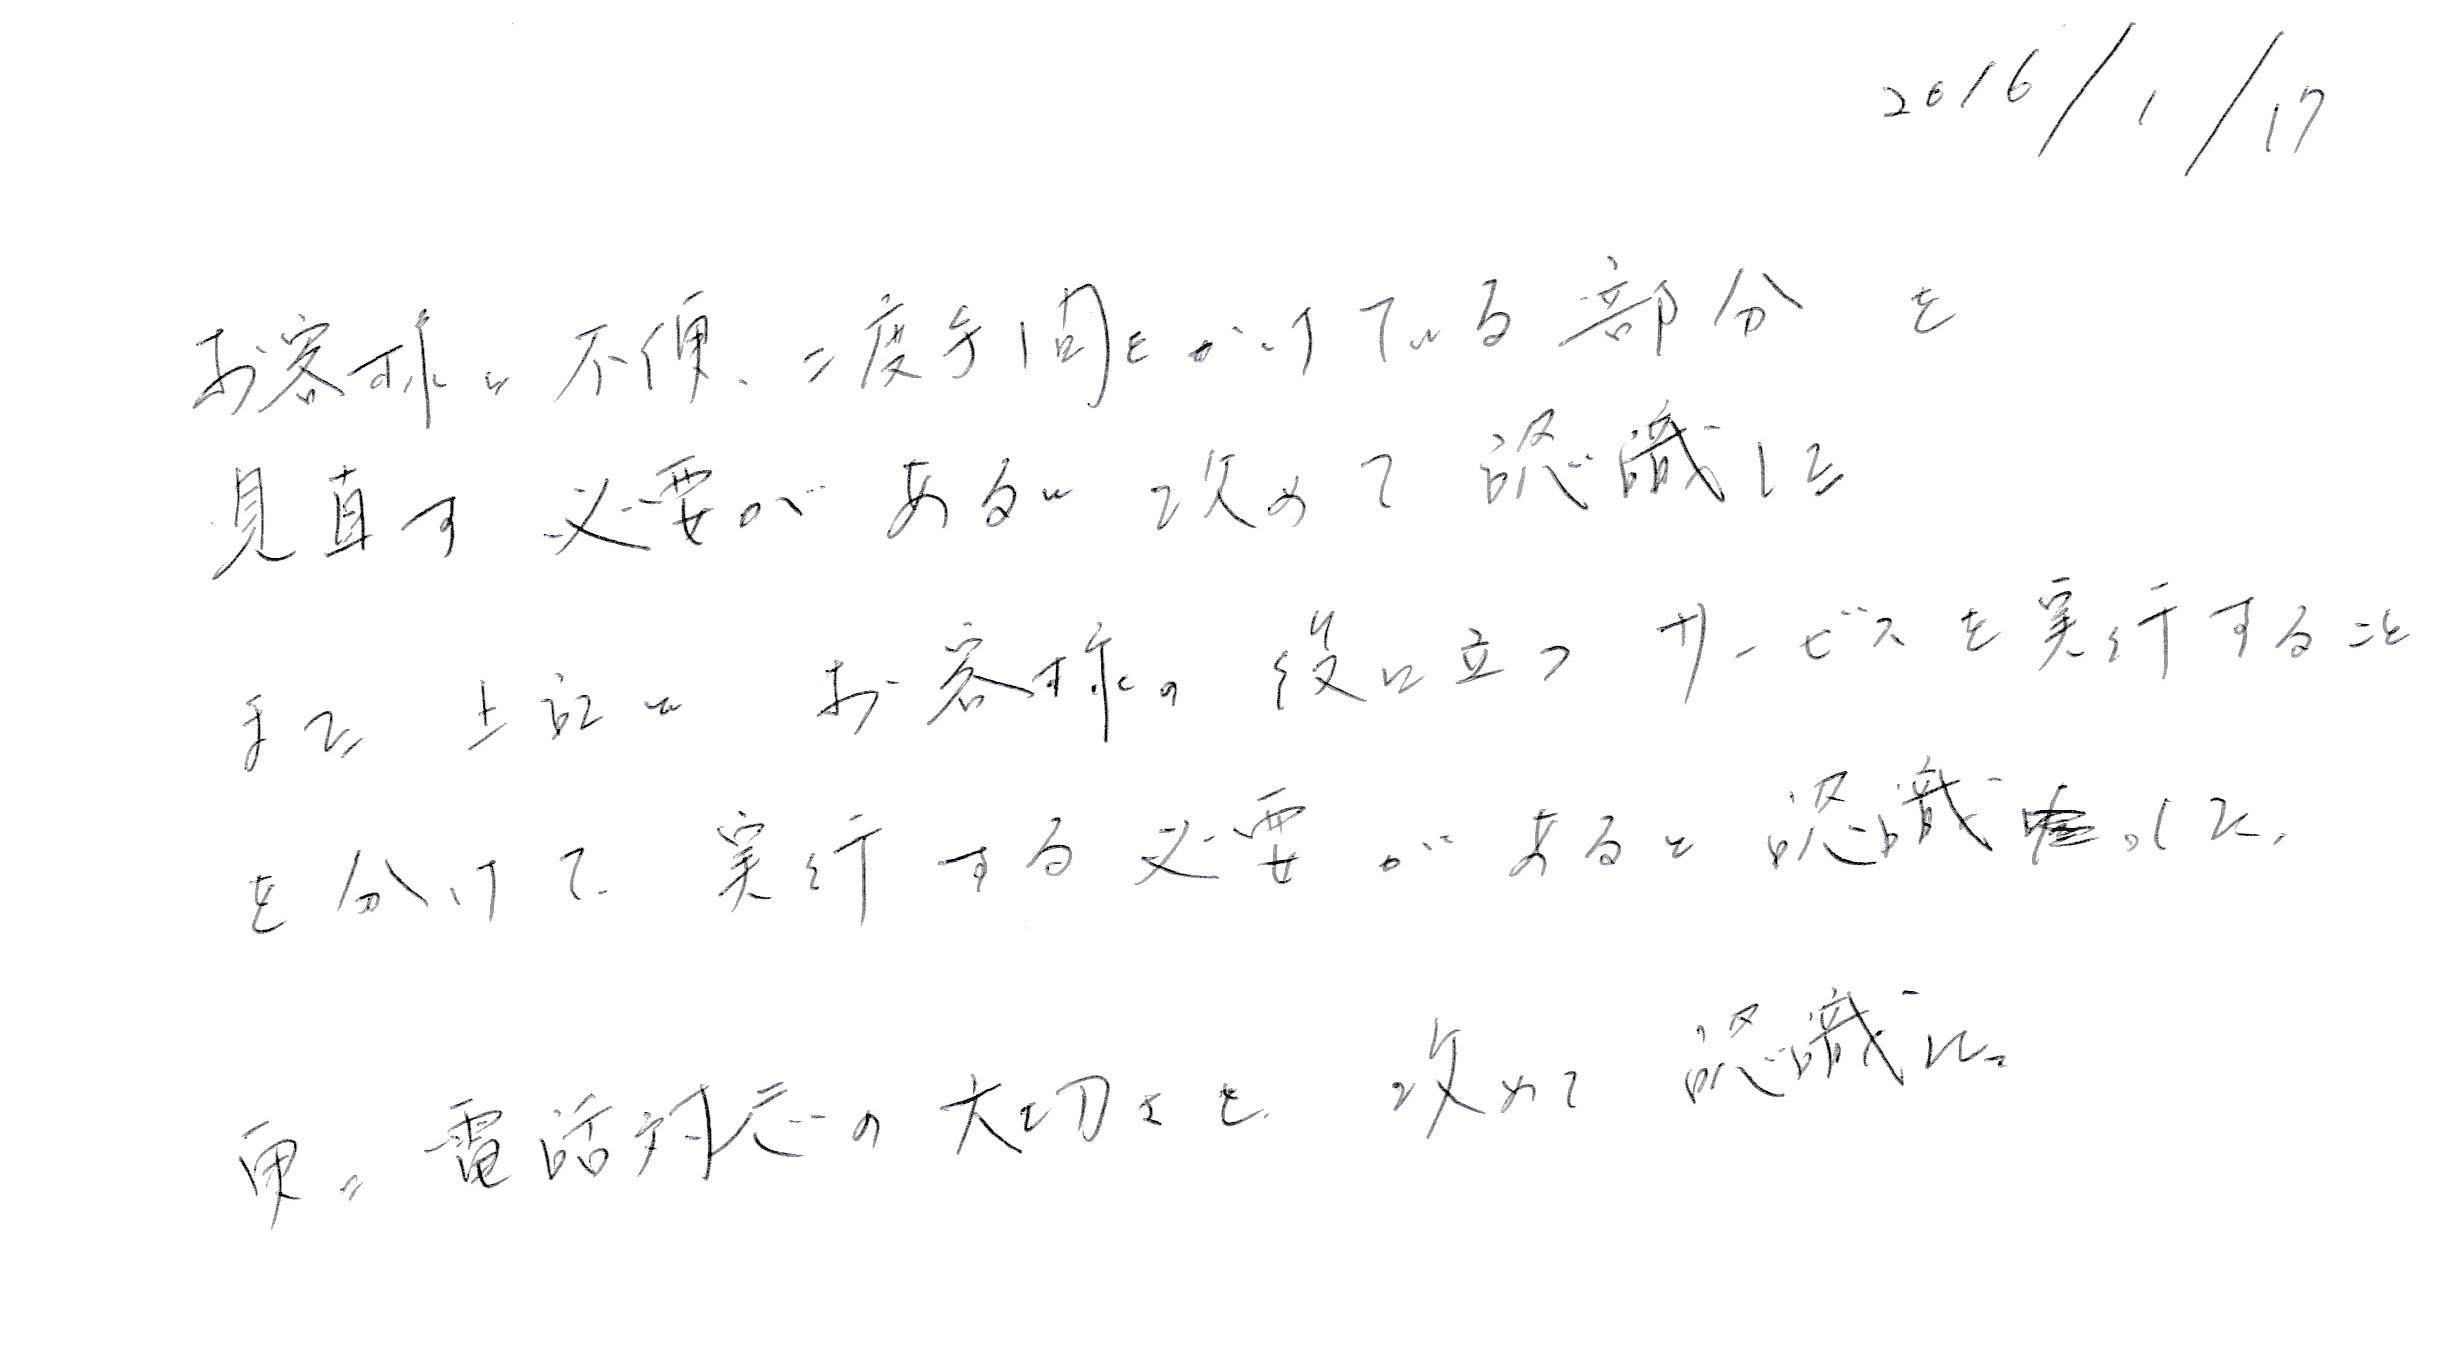 2016/1/17
お客様に不便、二度手間をかけている部分を
見直す必要があると改めて認識した
また上記と お客様の役に立つサービスを実行すること
を分けて実行する必要があると認識した。
更に電話対応の大切さを改めて認識した